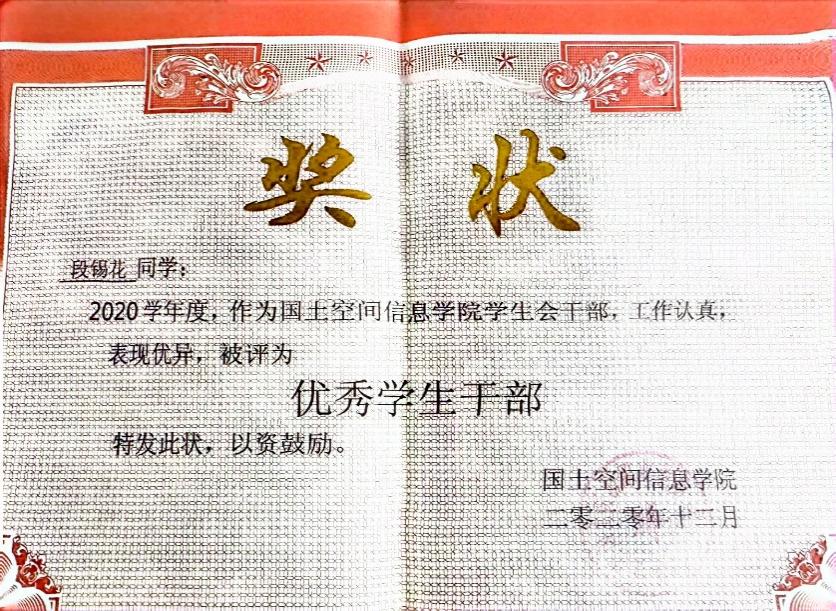 奖 状
段锡花 同学：
2020学年度，作为国土空间信息学院学生会干部，工作认真，
表现优异，被评为
优秀学生干部
特发此状，以资鼓励。
国土空间信息学院
二零二零年十二月